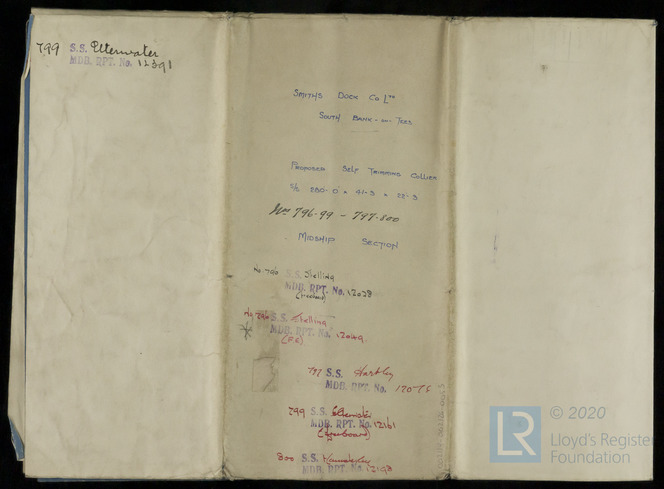 799 S.S. Elterwater
MDB. RPT. No. 12391
SMITHS DOCK CO LTD
SOUTH BANK-ON-TEES
PROPOSED SELF TRIMMING COLLIER
S/S 280-0 x 41-3 x 22-3
Nos 796-99 - 797-800
MIDSHIP SECTION
No 796 S.S. Skelling
MDB. RPT. No. 12028
(freeboard)
No 796 S.S. Skelling
MDB. RPT. No. 12049
(F.E)
797 S.S. Hartley
MDB. RPT. No.
799 S.S. Elterwater
MDB. RPT. No. 12161
(freeboard)
800 S.S.
MDB. RPT. No. 12193
LR © 2020
Lloyd's Register
Foundation